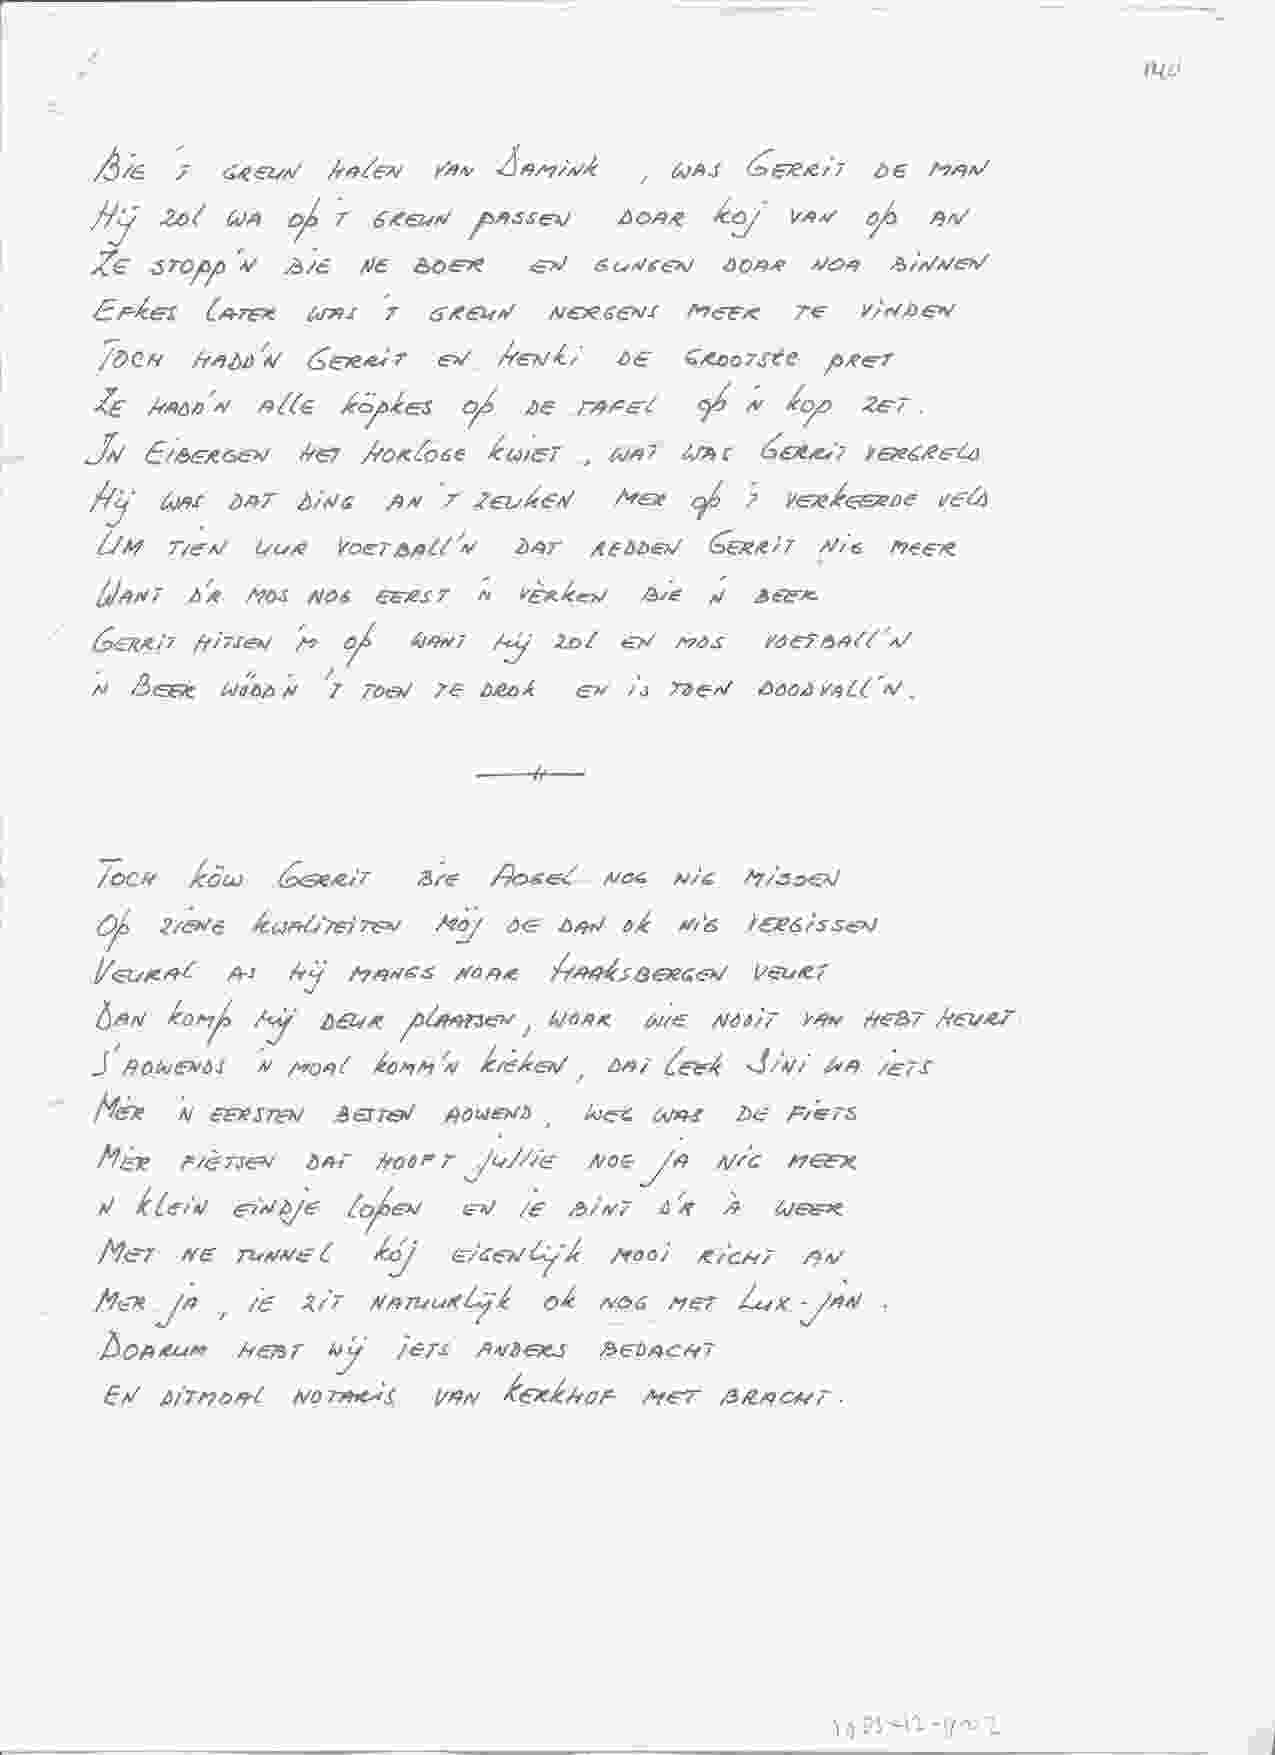 140
Bie 't greun halen van Damink, was Gerrit de man
Hij zol wa op 't greun passen doar koj van op an
Ze stopp'n bie ne boer en gungen doar noa binnen
Efkes later was 't greun nergens meer te vinden
Toch hadd'n Gerrit en Henki de grootste pret
Ze hadd'n alle köpkes op de tafel op 'n kop zet.
In Eibergen het horloge kwiet, wat was Gerrit vergreld
Hij was dat ding an 't zeuken mer op 't verkeerde veld
Um tien uur voetball'n dat redden Gerrit nig meer
Want d'r mos nog eerst 'n vèrken bie 'n beer
Gerrit hitsen 'm op want hij zol en mos voetball'n
'n Beer wödd'n 't toen te drok en is toen doodvall'n.
Toch köw Gerrit bie Aogel nog nig missen
Op ziene kwaliteiten möj oe dan ok nig vergissen
Veural as hij mangs noar Haaksbergen veurt
Dan komp hij deur plaatsen, woar wie nooit van hebt heurt
S'aowends 'n moal komm'n kieken, dat leek Sini wa iets
Mer 'n eersten besten aowend, weg was de fiets
Mer fietsen dat hooft jullie nog ja nig meer
'n klein eindje lopen en ie bint d'r à weer
Met ne tunnel kój eigenlijk mooi richt an
Mer ja, ie zit natuurlijk ok nog met Lux-jan.
Doarum hebt wij iets anders bedacht
En ditmoal notaris van Kerkhof met bracht.